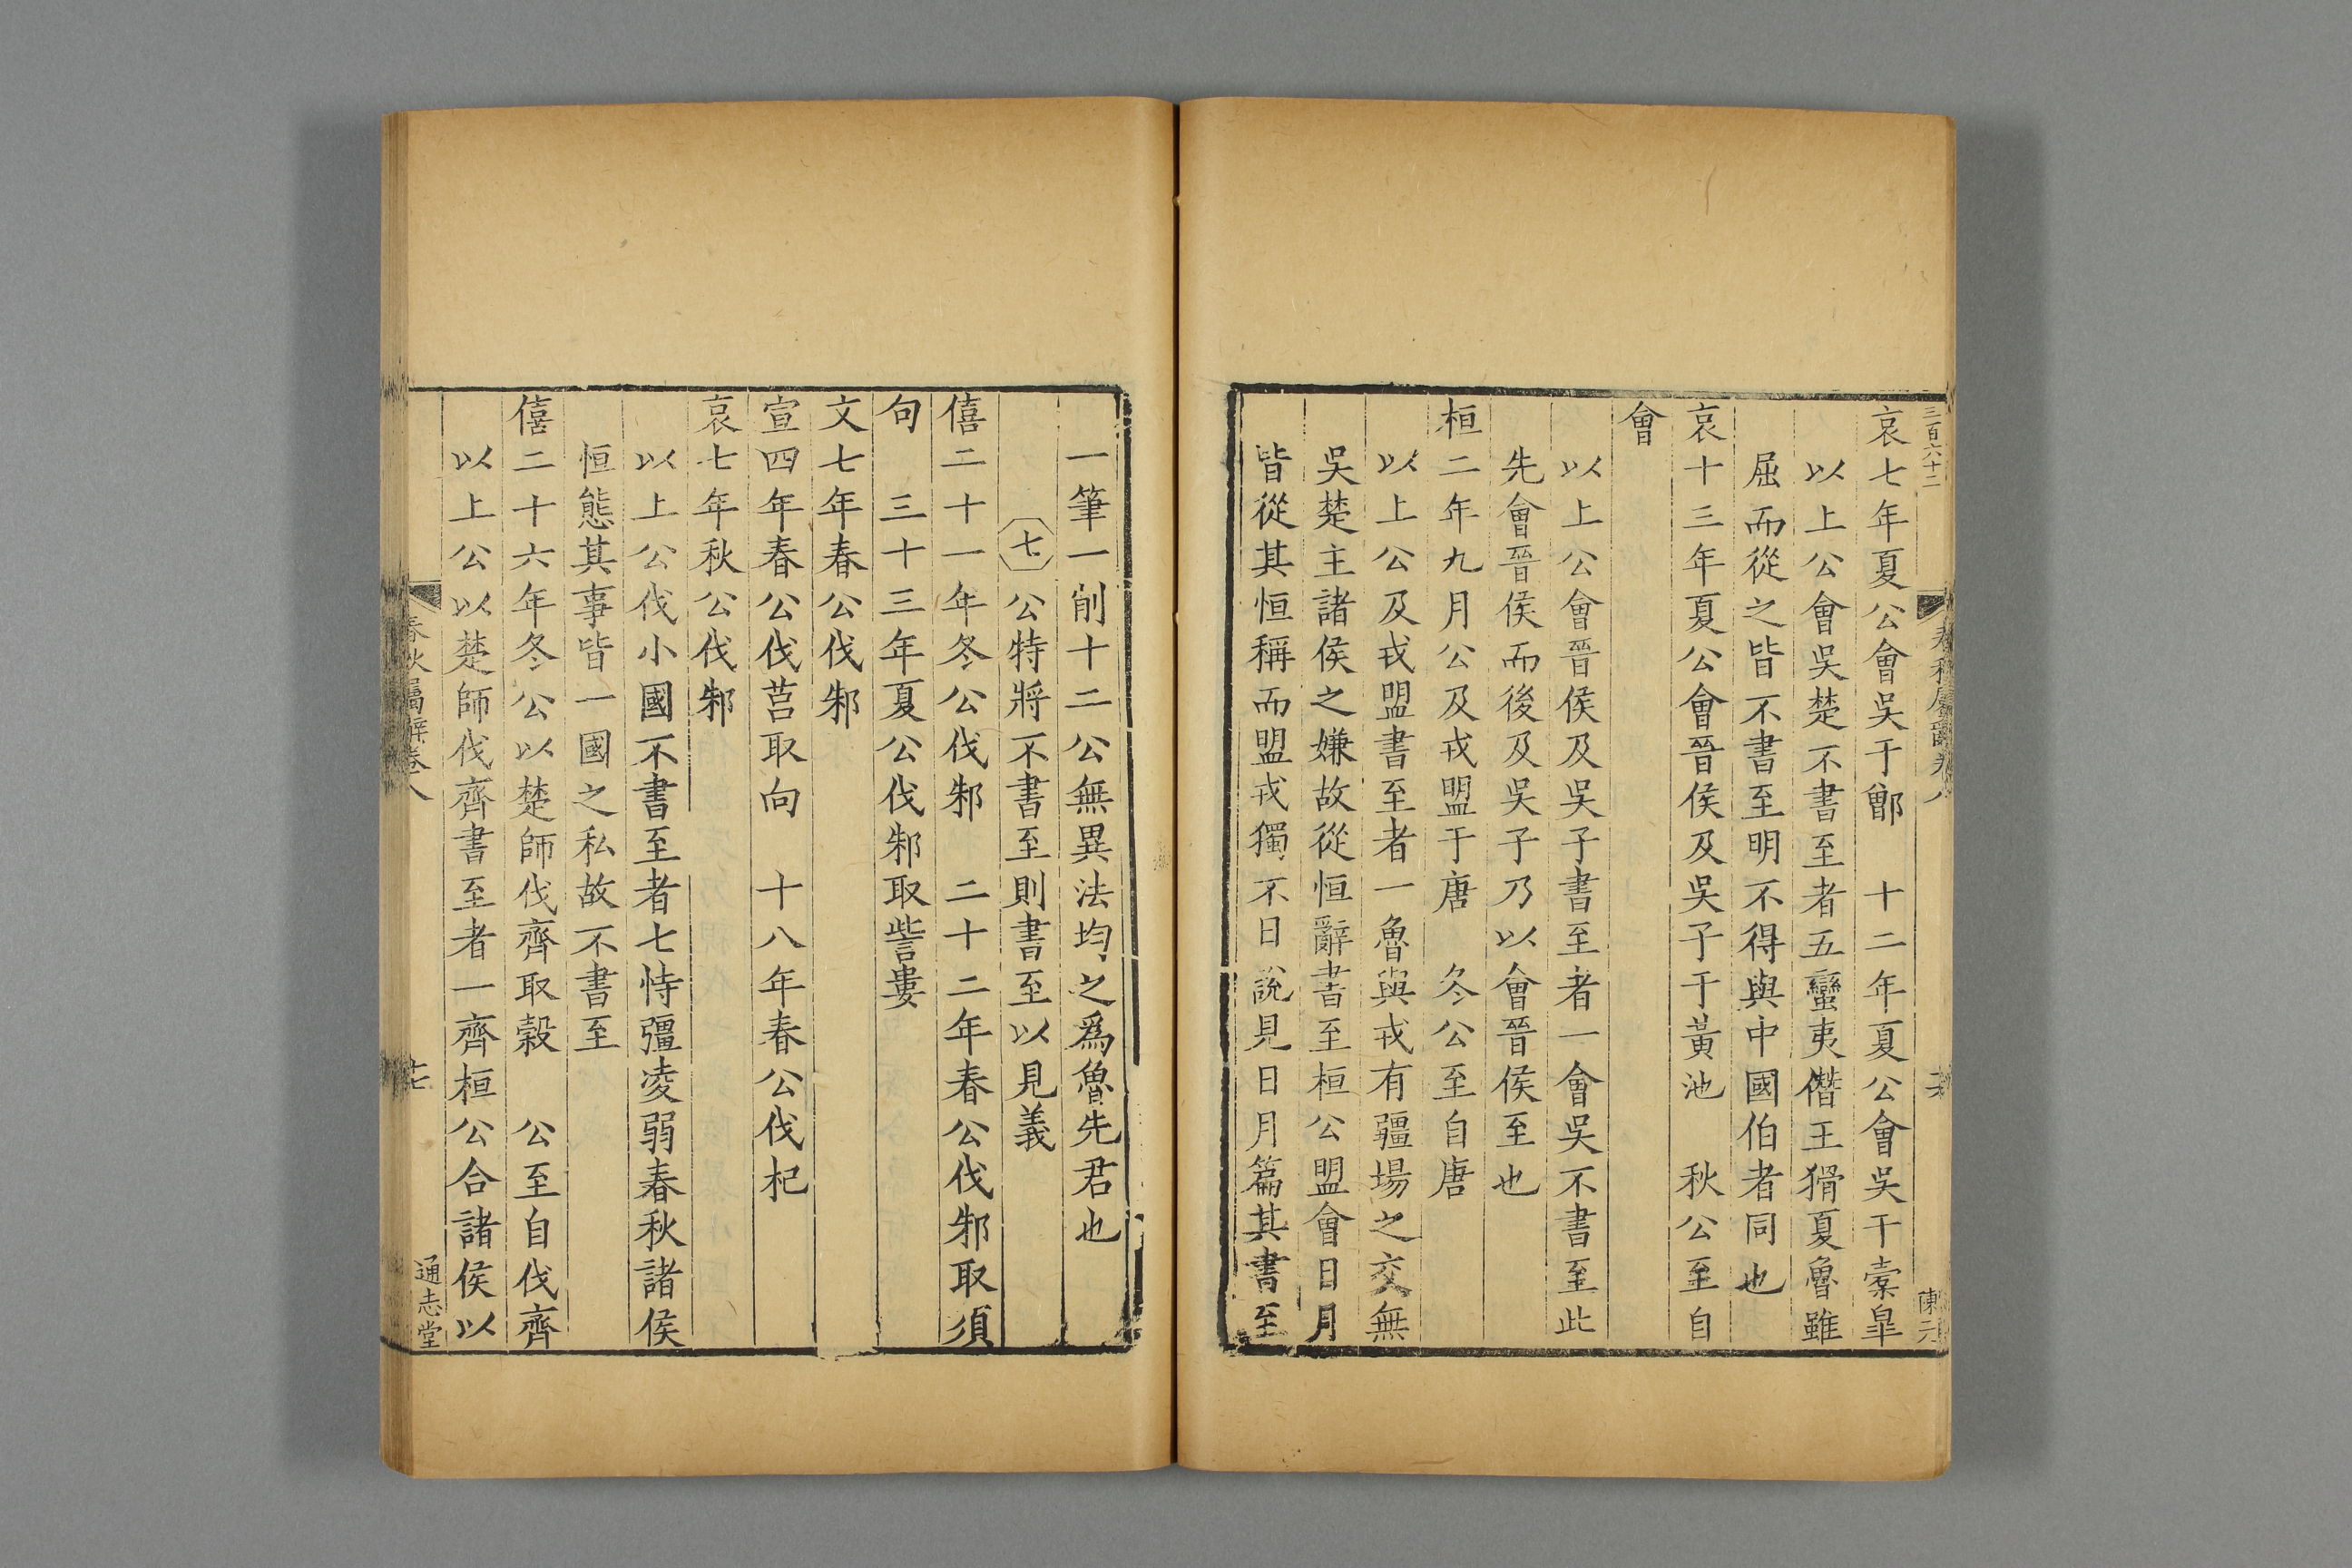 三百六十二
春秋屬辭卷八
陳元
哀七年夏公會吳于鄫　十二年夏公會吳于橐皐
以上公會吳楚不書至者五蠻夷僭王猾夏魯雖
屈而從之皆不書至明不得與中國伯者同也
哀十三年夏公會晉侯及吳子于黃池　秋公至自
會
以上公會晉侯及吳子書至者一會吳不書至此
先會晉侯而後及吳子乃以會晉侯至也
桓二年九月公及戎盟于唐　冬公至自唐
以上公及戎盟書至者一魯與戎有疆場之交無
吳楚主諸侯之嫌故從恒辭書至桓公盟會日月
皆從其恒稱而盟戎獨不日說見日月篇其書至
一筆一削十二公無異法均之爲魯先君也
七　公特將不書至則書至以見義
僖二十一年冬公伐邾　二十二年春公伐邾取須
句　三十三年夏公伐邾取訾婁
文七年春公伐邾
宣四年春公伐莒取向　十八年春公伐杞
哀七年秋公伐邾
以上公伐小國不書至者七恃彊凌弱春秋諸侯
恒態其事皆一國之私故不書至
僖二十六年冬公以楚師伐齊取穀　公至自伐齊
以上公以楚師伐齊書至者一齊桓公合諸侯以
春秋屬辭卷八
十七
通志堂